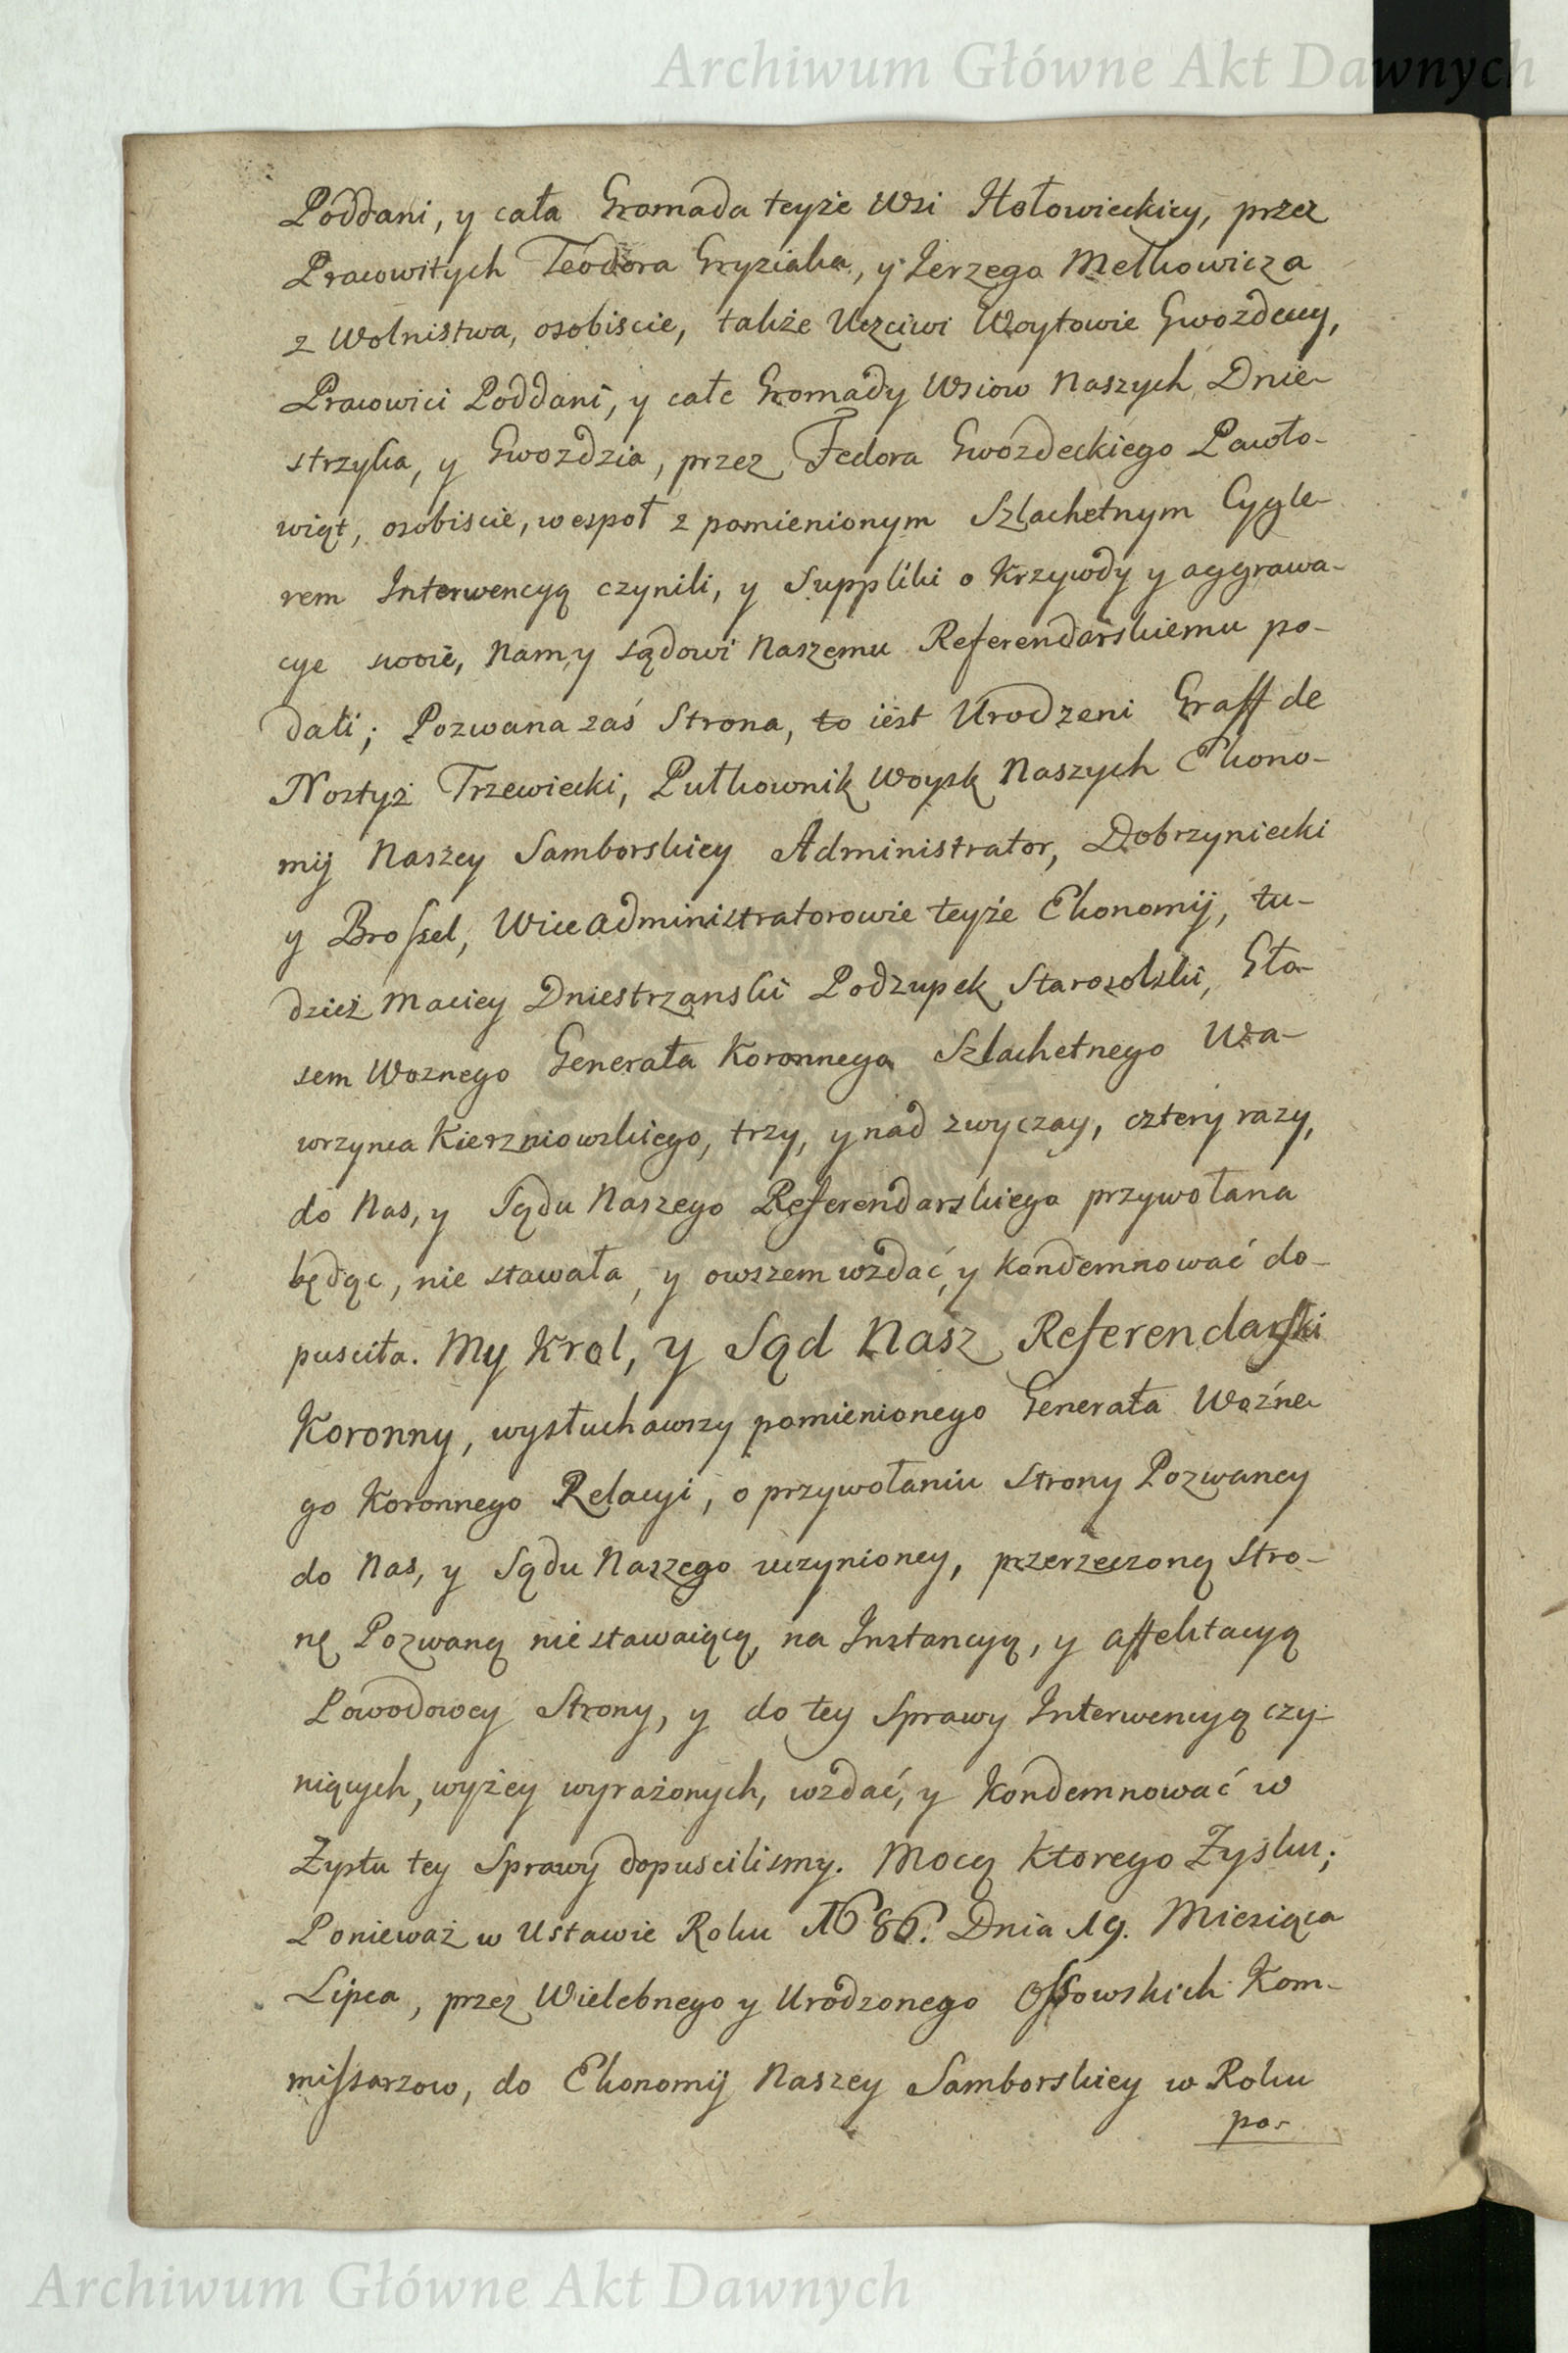 Archiwum Główne Akt Dawnych
Poddani, y cała Gromada teyże Wsi Hołowieckiey, przez
Pracowitych Teodora Gryziaka, y Jerzego Metkowicza
z Wolnistwa, osobiscie, także Uczciwi Woytowie Gwozdccy,
Pracowici Poddani, y całe Gromady Wsiow Naszych Dnie-
strzyka, y Gwozdzia, przez Fedora Gwozdeckiego Pawło-
wiąt, osobiscie, wespoł z pomienionym Szlachetnym Cygle-
rem Interwencyą czynili, y Suppliki o Krzywdy y aggrawa-
cye swoie, Nam y sądowi Naszemu Referendarskiemu po-
dali; Pozwana zaś Strona, to iest Urodzeni Graff de
Nostyz Trzewiecki, Pułkownik Woysk Naszych Ekono-
mij Naszey Samborskiey Administrator, Dobrzyniecki
y Brossel, Wice Administratorowie teyże Ekonomij, tu-
dzież Maciey Dniestrzanski Podzupek Starosolski, Gło-
sem Woznego Generała Koronnego Szlachetnego Wa-
wrzynca Kierzniowskiego, trzy, y nad zwyczay, cztery razy,
do Nas, y Sądu Naszego Referendarskiego przywołana
będąc, nie stawała, y owszem wzdać, y kondemnować do-
pusciła. My Krol, y Sąd Nasz Referendarski
Koronny, wysłuchawszy pomienionego Generała Woźne-
go Koronnego Relacyi, o przywołaniu Strony Pozwaney
do Nas, y Sądu Naszego uczynioney, przerzeczoną Stro-
nę Pozwaną niestawaiącą, na Instancyą, y affektacyą
Powodowey Strony, y do tey Sprawy Interwencyą czy-
niących, wyżey wyrażonych, wzdać, y Kondemnować w
Zysku tey Sprawy dopuscilismy. Mocą ktorego Zysku;
Ponieważ w Ustawie Roku 1686. Dnia 19. Miesiąca
Lipca, przez Wielebnego y Urodzonego Ossowskich Kom-
missarzow, do Ekonomij Naszey Samborskiey w Roku
po-
Archiwum Główne Akt Dawnych